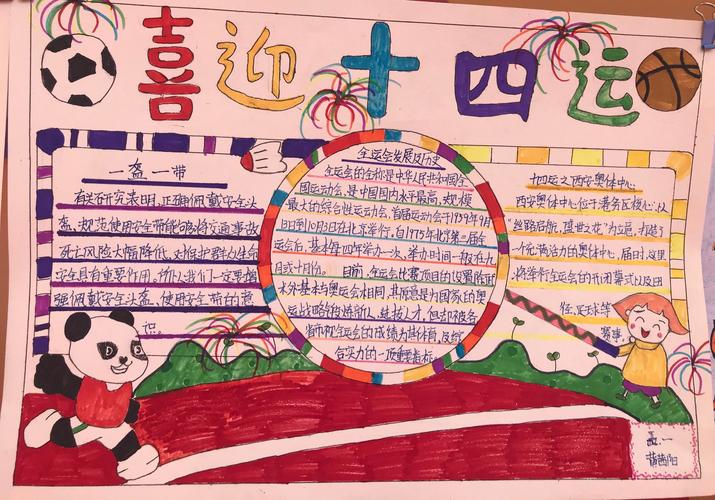 喜迎十四运
一盔一带
有关研究表明,正确佩戴安全头
盔,规范使用安全带能够将交通事故
死亡风险大幅降低,对保护群众生命
安全具有重要作用。所以我们一定要增
强佩戴安全头盔、使用安全带的意
识。
全运会发展及历史
全运会的全称是中华人民共和国全
国运动会,是中国国内水平最高、规模
最大的综合性运动会,首届运动会于1959年9月
13日到10月3日在北京举行。自1975年北京第三届全
运会后,基本每四年举办一次,举办时间一般在九
月或十月份。目前,全运会比赛项目的设置除武
术外基本与奥运会相同,其原意是为国家的奥
运战略锻炼新人、选拔人才,但却被各
省市视全运会的成绩为其体育及综
合实力的一项重要指标。
十四运之西安奥体中心:
西安奥体中心位于港务区核心,以
“丝路启航,盛世之花”为立意,打造了
一个充满活力的奥体中心。届时,这里
将举行全运会的开闭幕式以及田
径、足球等
赛事。
五.一